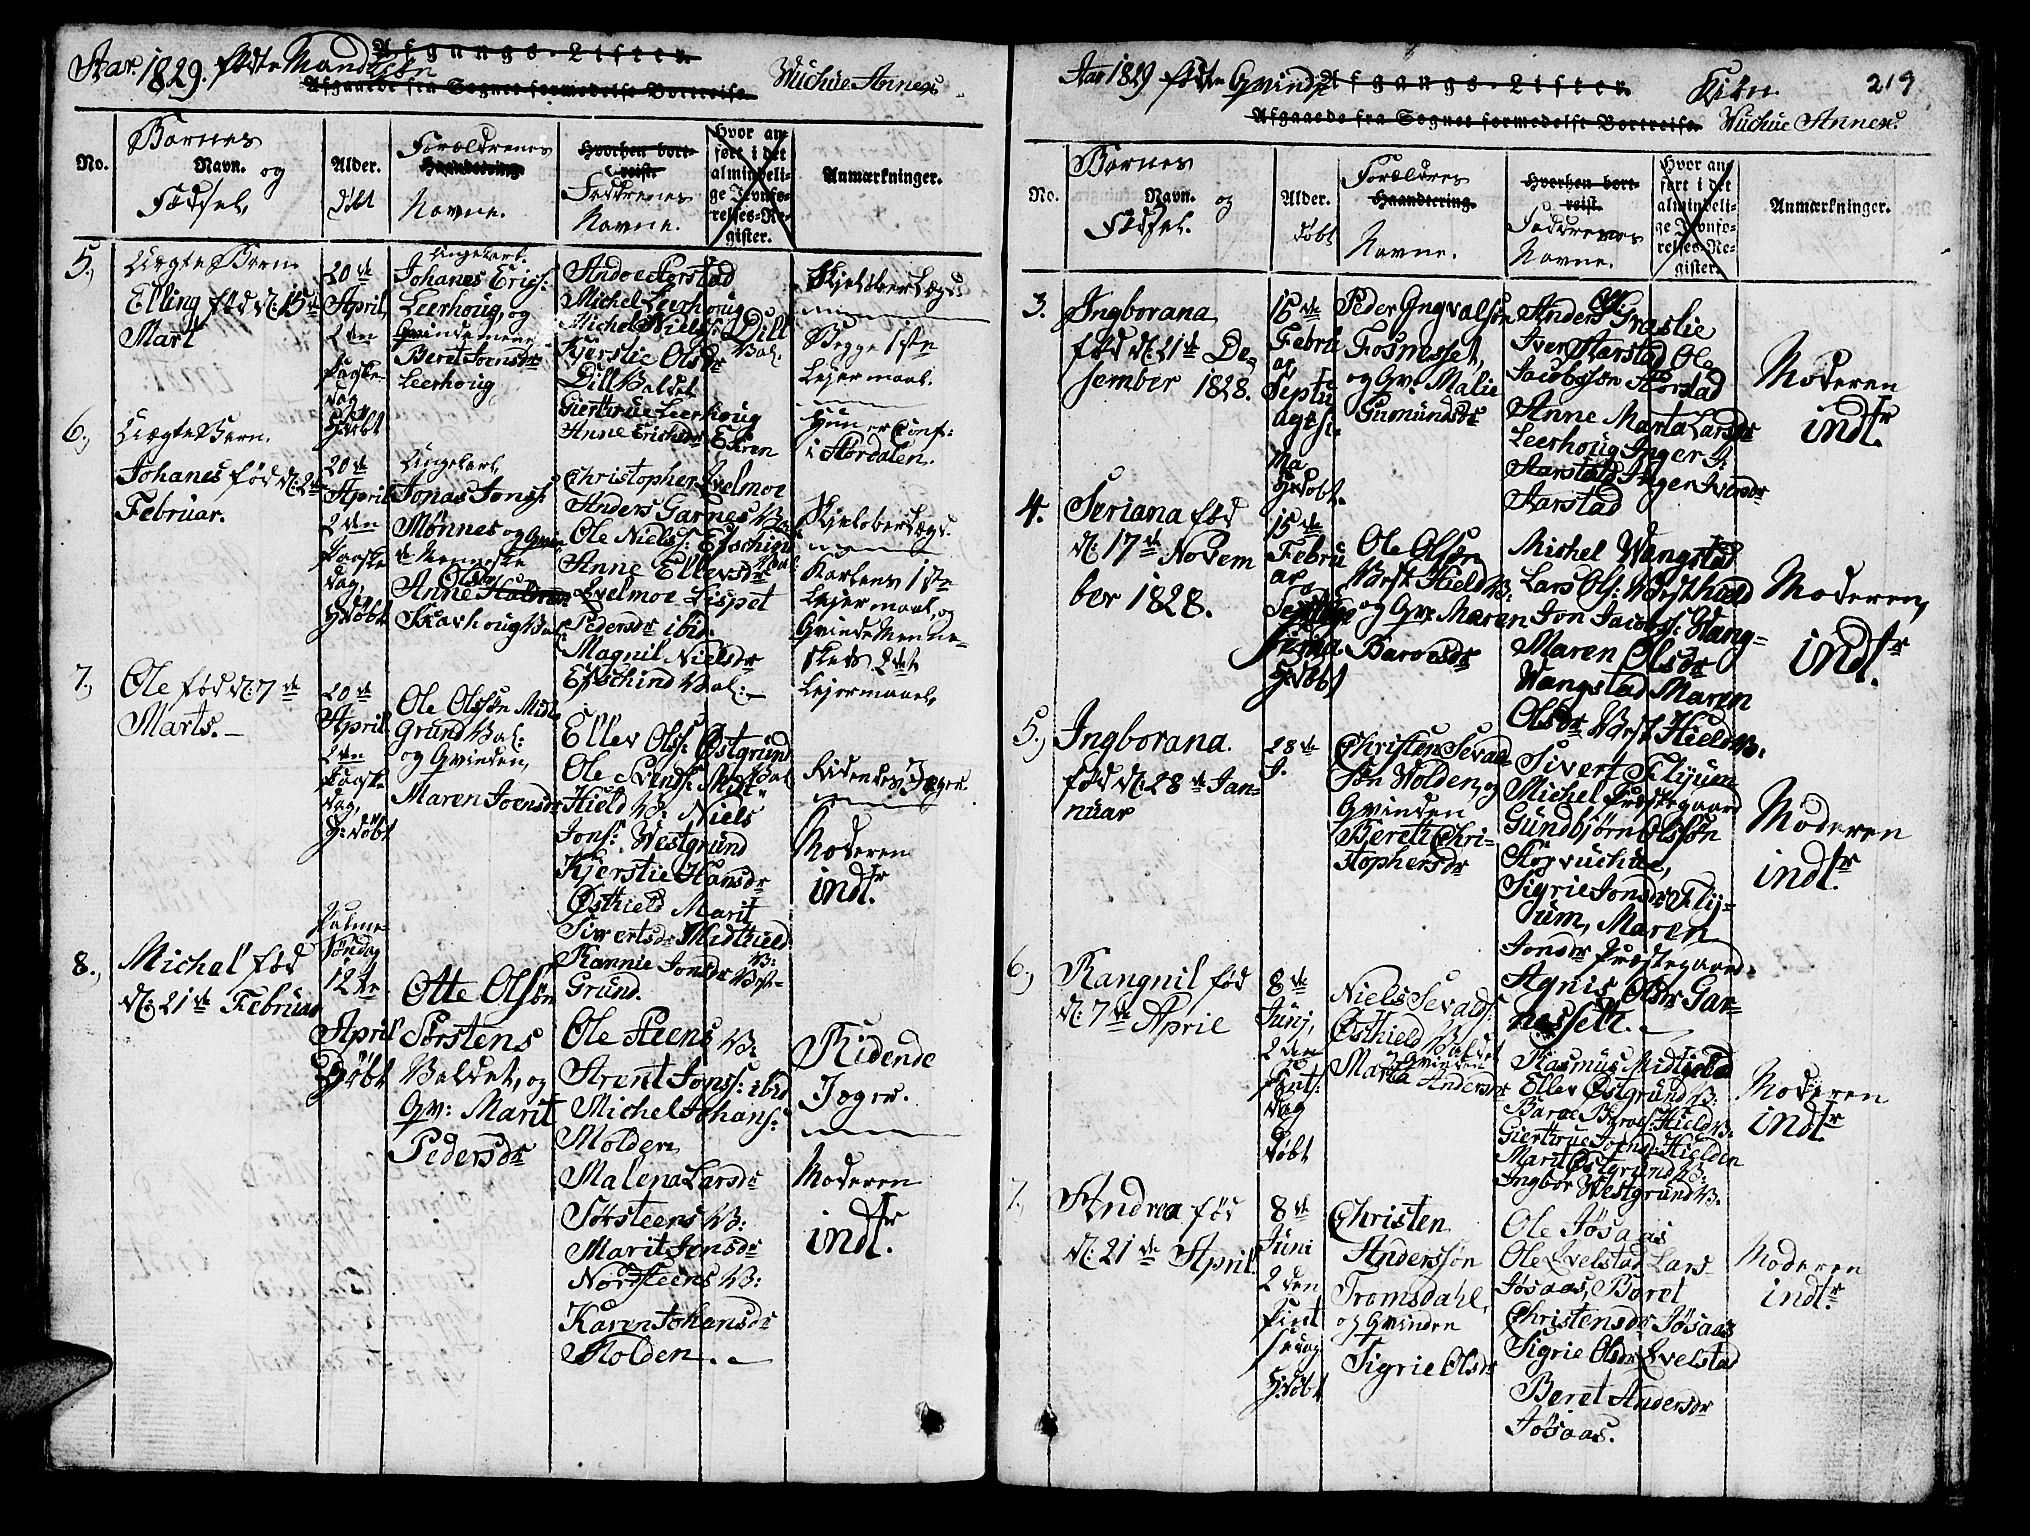 Aar 1829. fødte Mandkiøn
Afgangs-Lister
Afgaaede fra Sognet formedelst Bortreise
Wuchue Annex
No.
Barnes
Navn. og
Fødsel.
Alder.
døbt
Forældrenes
Haandtering.
Navne.
Hvorhen bort-
reist.
Faddrenes
Navne.
Hvor an-
ført i det
almindeli-
ge Jevnfø-
relses-Re-
gister.
Anmærkninger.
5.,
Uægte Barn
Elling fød d: 15de
Mart
20de
April
2den
Paaske-
dag
H:døbt
Ungekarl
Johanes Erichs:
Leerhoug, og
Qvindemene-
Beret Joensdr
Leerhoug
Michel Leerhoug
Michel Niels: Dill
Val.
Kjerstie Olsdr
Dill Valdet
Giertrue Leerhoug
Anne Erichsdr Ekren
Begge 1ste
Leiermaal.
Hun er Conf:
i Størdalen.
6.,
Uægte Barn.
Johanes fød d: 2de
Februar.
20de
April
2den
Paaske
dag,
H:døbt
Ungekarl
Jonas Jons:
Mønnes og Qvin-
de Menneske
Olsdr
Anne
Skavhoug Val:
Christopher Evelmoe
Anders Garnes V:
Ole Niels:
Anne Ellevsdr
Evelmoe Lispet
Pedersdr ibid.
Magnil Nielsdr
Karlens 1ste
Leiermaal, og
Qvinde Menne-
skets 2det
Leiermaal,
7.,
Ole fød d: 7de
Marts.
20de
April
2den
Paaske
dag,
H:døbt
Ole Olssøn Midt
Grund Val:
og Qvinden,
Maren Joensdr
Ellev Ols: Østgrund
Ole Svends: Midt-
Hield V: Niels
Jons: Westgrund
Kjerstie Hansdr
Østhield Marit
Sivertsdr Midthield
V:
Rannie Jonsdr West-
Grund.
Ridende Jæger.
Moderen
indl:
8.,
Michel fød
d: 21de Februar
Palme
Søndag
12te
April
H:døbt
Otte Olssøn
Sørstens
Valdet, og
Qv: Marit
Pedersdr
Ole Steens V:
Arent Jons: ibid
Michel Johans:
Molden
Malena Larsdr
Sørsteens V:
Marit Jonsdr
Nordsteens V:
Karen Johansdr
Molden.
Ridende
Jæger.
Moderen
indl:
Aar 1829 fødte Qvinde
Kiøn.
219
Afgangs-Lister
Afgaaede fra Sognet formedelst Bortreise
Wuchue Annex.
No.
Barnes
Navn. og
Fødsel.
Alder.
døbt
Forældres
Haandtering.
Navne.
Hvorhen bort-
reist.
Faddrenes
Navne.
Hvor an-
ført i det
almindeli-
ge Jevnfø-
relses-Re-
gister.
Anmærkninger.
3.
Ingborana
fød d: 21de De-
sember 1828.
15de
Febru
ar
Septu
agesi-
ma
H:døbt.
Peder Yngvalsøn
Fosnesset,
og Qv: Malie
Gumundsdr
Anders Græslie
Iver Starstad Ole
Jacobsøn
Anne Marta Larsdr
Leerhoug Inger J:
Starstad Inger Iversdr
Starstad
Moderen
indl:
4.
Seriana fød
d: 17de Novem
ber 1828.
15de
Febru
ar
H:døbt
Ole Olssøn
Værst Hield V:
og Qv: Maren
Baroesdr
Michel Wangstad
Lars Ols: Værsthield
Jon Jacobs: Wang-
Maren Olsdr
Wangstad Maren
Olsdr Værst Hield V:
Moderen,
indl:
5.,
Ingborana.
fød d: 28de Jan-
nuar
28de
Christen Sevald
søn Wolden, og
Qvinden
Beret Chri-
stophersdr
Sivert Flijum
Michel Præstegaard
Gundbjørn Olssøn
Storvuchue,
Sigrie Jonsdr Flij-
um, Maren
Jonsdr Præstegaard-
Agnis Olsdr Gar-
nessett.
Moderen
indl:
6.,
Rangnil fød
d: 7de Aprie
8de
Junj,
2den
Pint:
dag
døbt
Niels Sevalds:
Østhield Valdet
og Qvinden
Marta Andersdr
Rasmus Midthield
Ellev Østgrund V:
Baroe Baroes: Hield V:
Giertrue Joensdr Hielden
Marit Østgrund V:
Ingbor Westgrund V:
Moderen
indl:
7.,
Andrea fød
d: 21de April.
8de
Juni
2den
Pint
sedag
H:døbt
Christen
Anderssøn
Tromsdahl,
og Qvinden
Sigrie Olsdr
Ole Jøsaas
Ole Evelstad Lars
Jøsaas, Beret
Christensdr Jøsaas
Sigrie Olsdr Evelstad
Beret Andersdr
Jøsaas.
Moderen
indl: